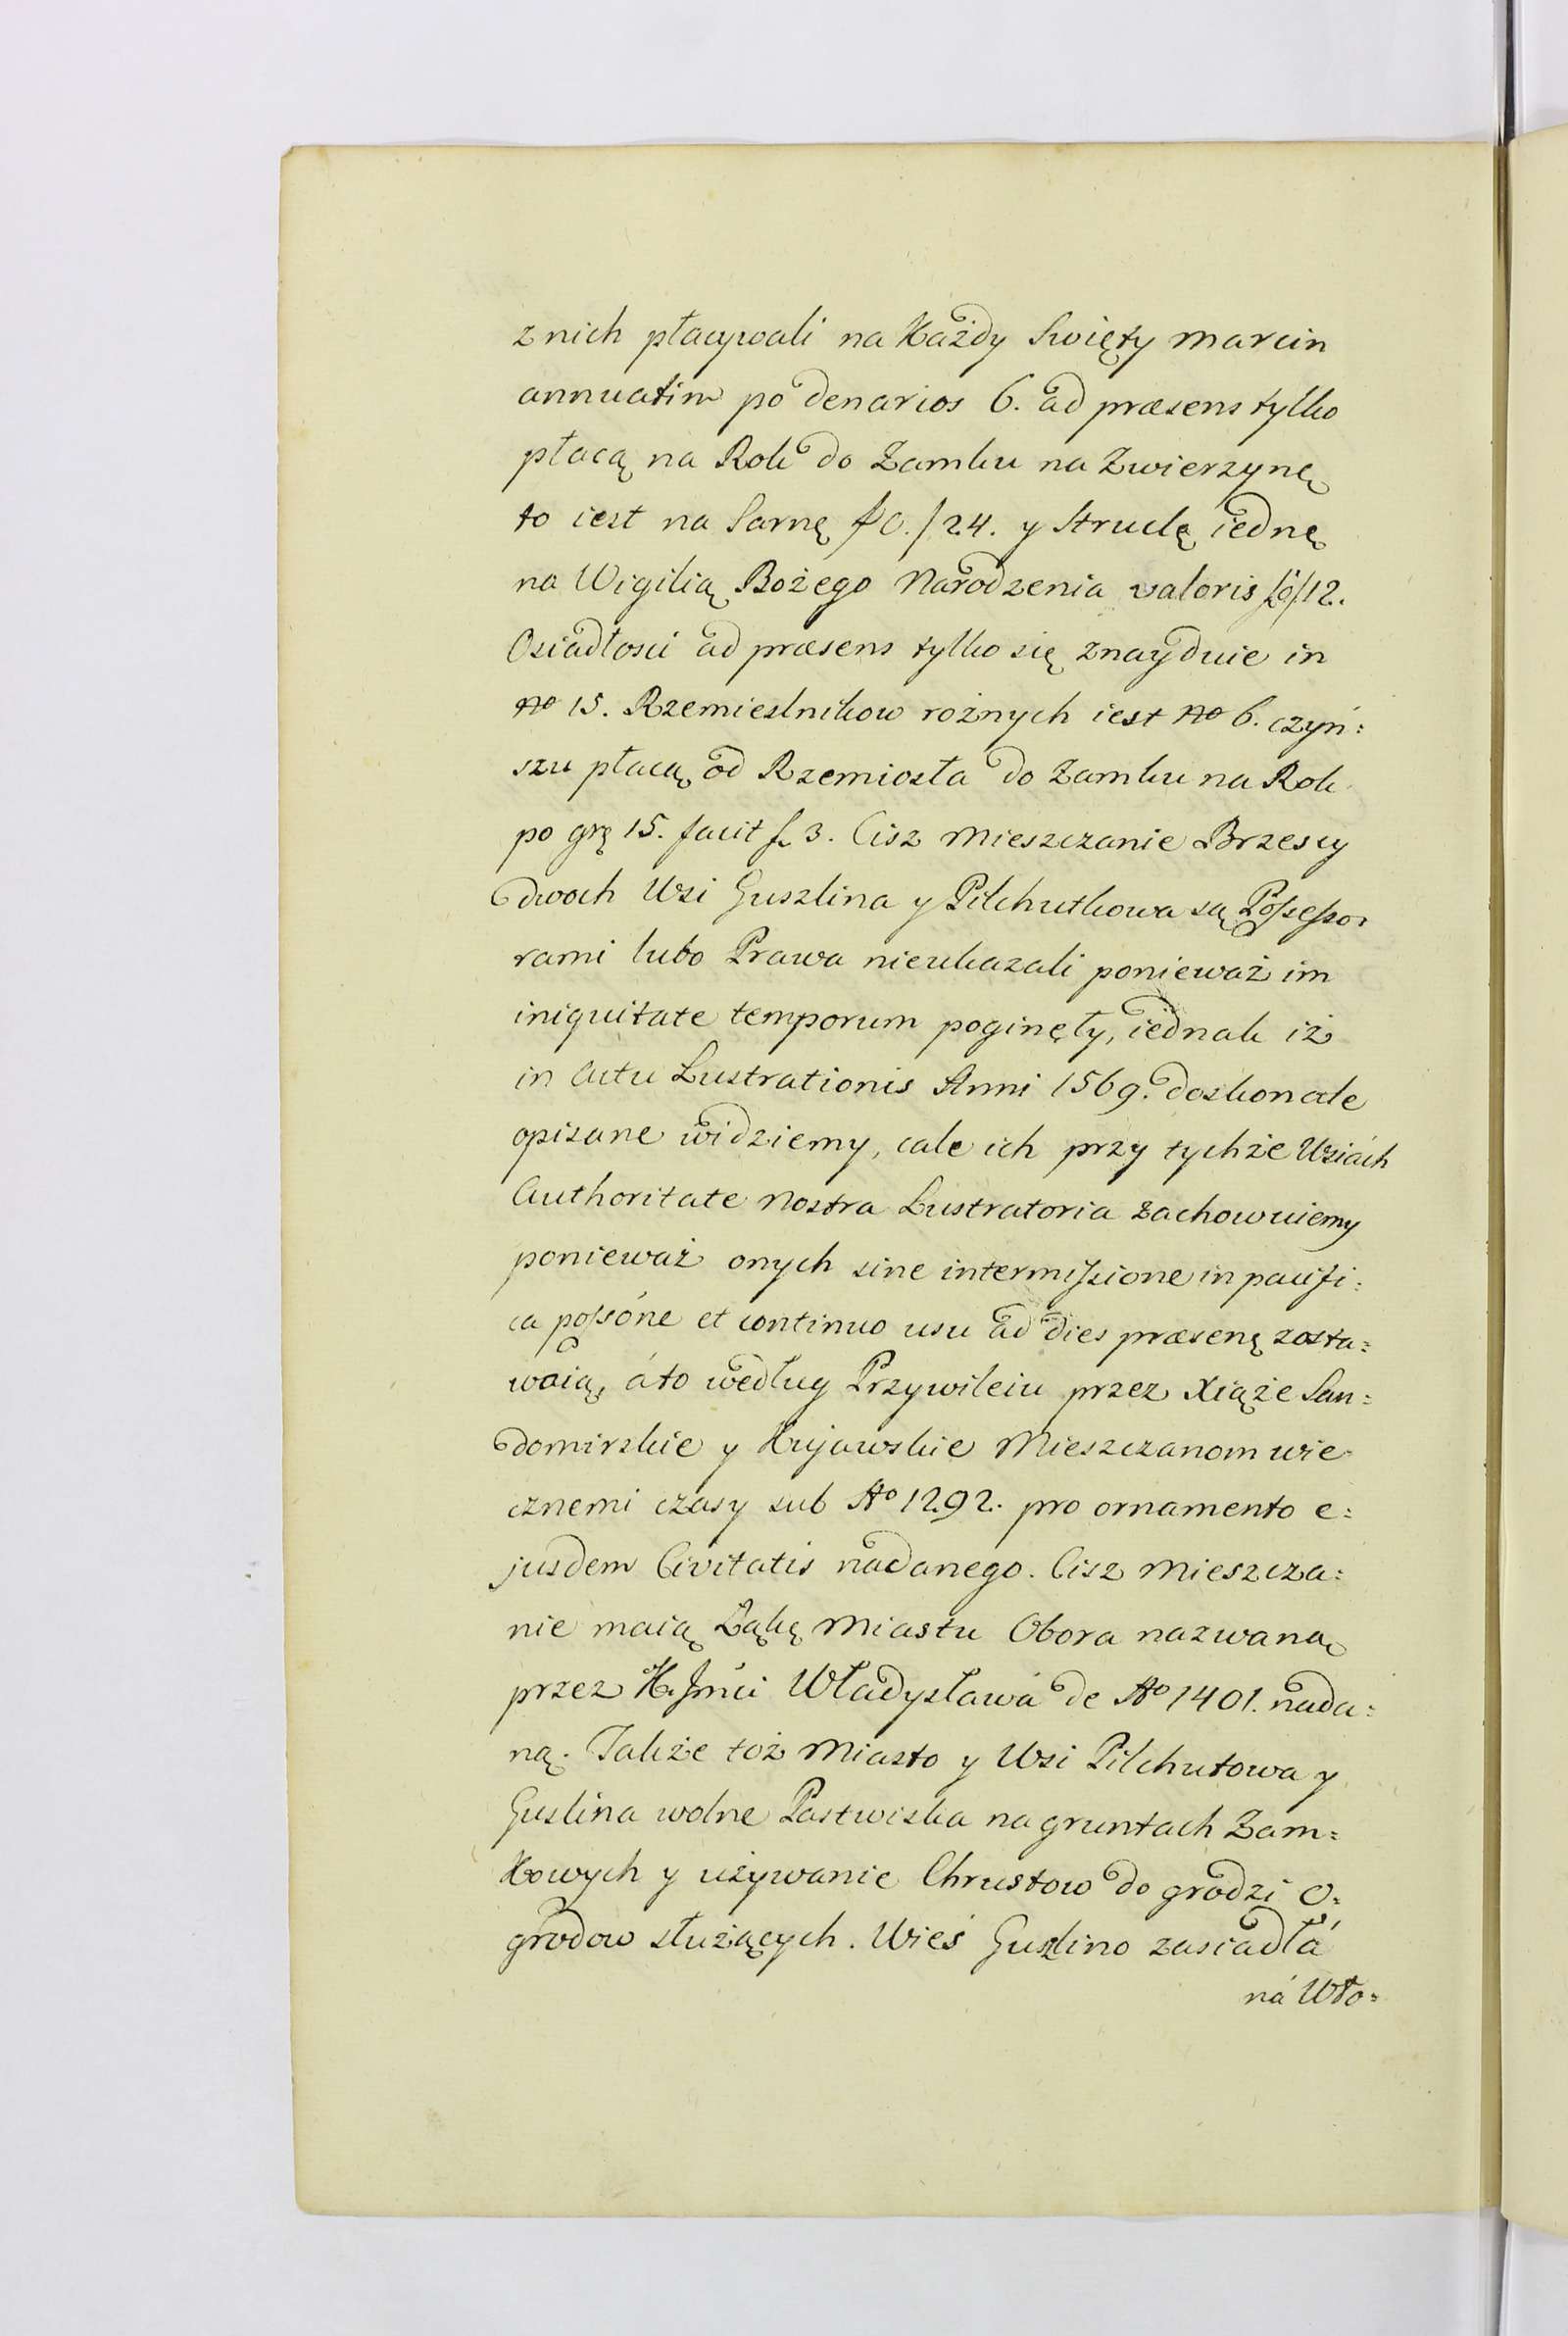 z nich płacywali na Każdy Swięty Marcin
annuatim po denarios 6. ad præsens tylko
płacą na Rok do Zamku na Zwierzynę
to iest na Sarnę f0./24. y Struclę iednę
na Wigilią Bożego Narodzenia valoris f0/12.
Osiadłosci ad præsens tylko się znayduie in
No 15. Rzemieslnikow rożnych iest No 6. czyń:
szu płacą od Rzemiosła do Zamku na Rok
po grę 15. facit f. 3. Cisz Mieszczanie Brzescy
dwoch Wsi Guszlina y Pilchutkowa są Possesso:
rami lubo Prawa nieukazali ponieważ im
iniquitate temporum poginęły, iednak iż
in Actu Lustrationis Anni 1569. doskonale
opisane widziemy, cale ich przy tychże Wsiách
Authoritate Nostra Lustratoria zachowuiemy
ponieważ onych sine intermissione in pacifi:
ca possóne et continuo usu ad dies præsenę zosta:
waią, áto według Przywileiu przez Xiąże San:
domirskie y Kujawskie Mieszczanom wie
cznemi czasy sub Ao 1292. pro ornamento e:
jusdem Civitatis nadanego. Cisz Mieszcza:
nie maią Łąkę Miastu Obora nazwaną
przez K. Jmći Władysława de Ao 1401. nada:
ną. Także toż Miasto y Wsi Pilchutowa y
Guslina wolne Pastwiska na gruntach Zam:
Kowych y używanie Chrustow do grodzi O:
grodow służących. Wieś Guszlino zasiadłá
ná Wło: